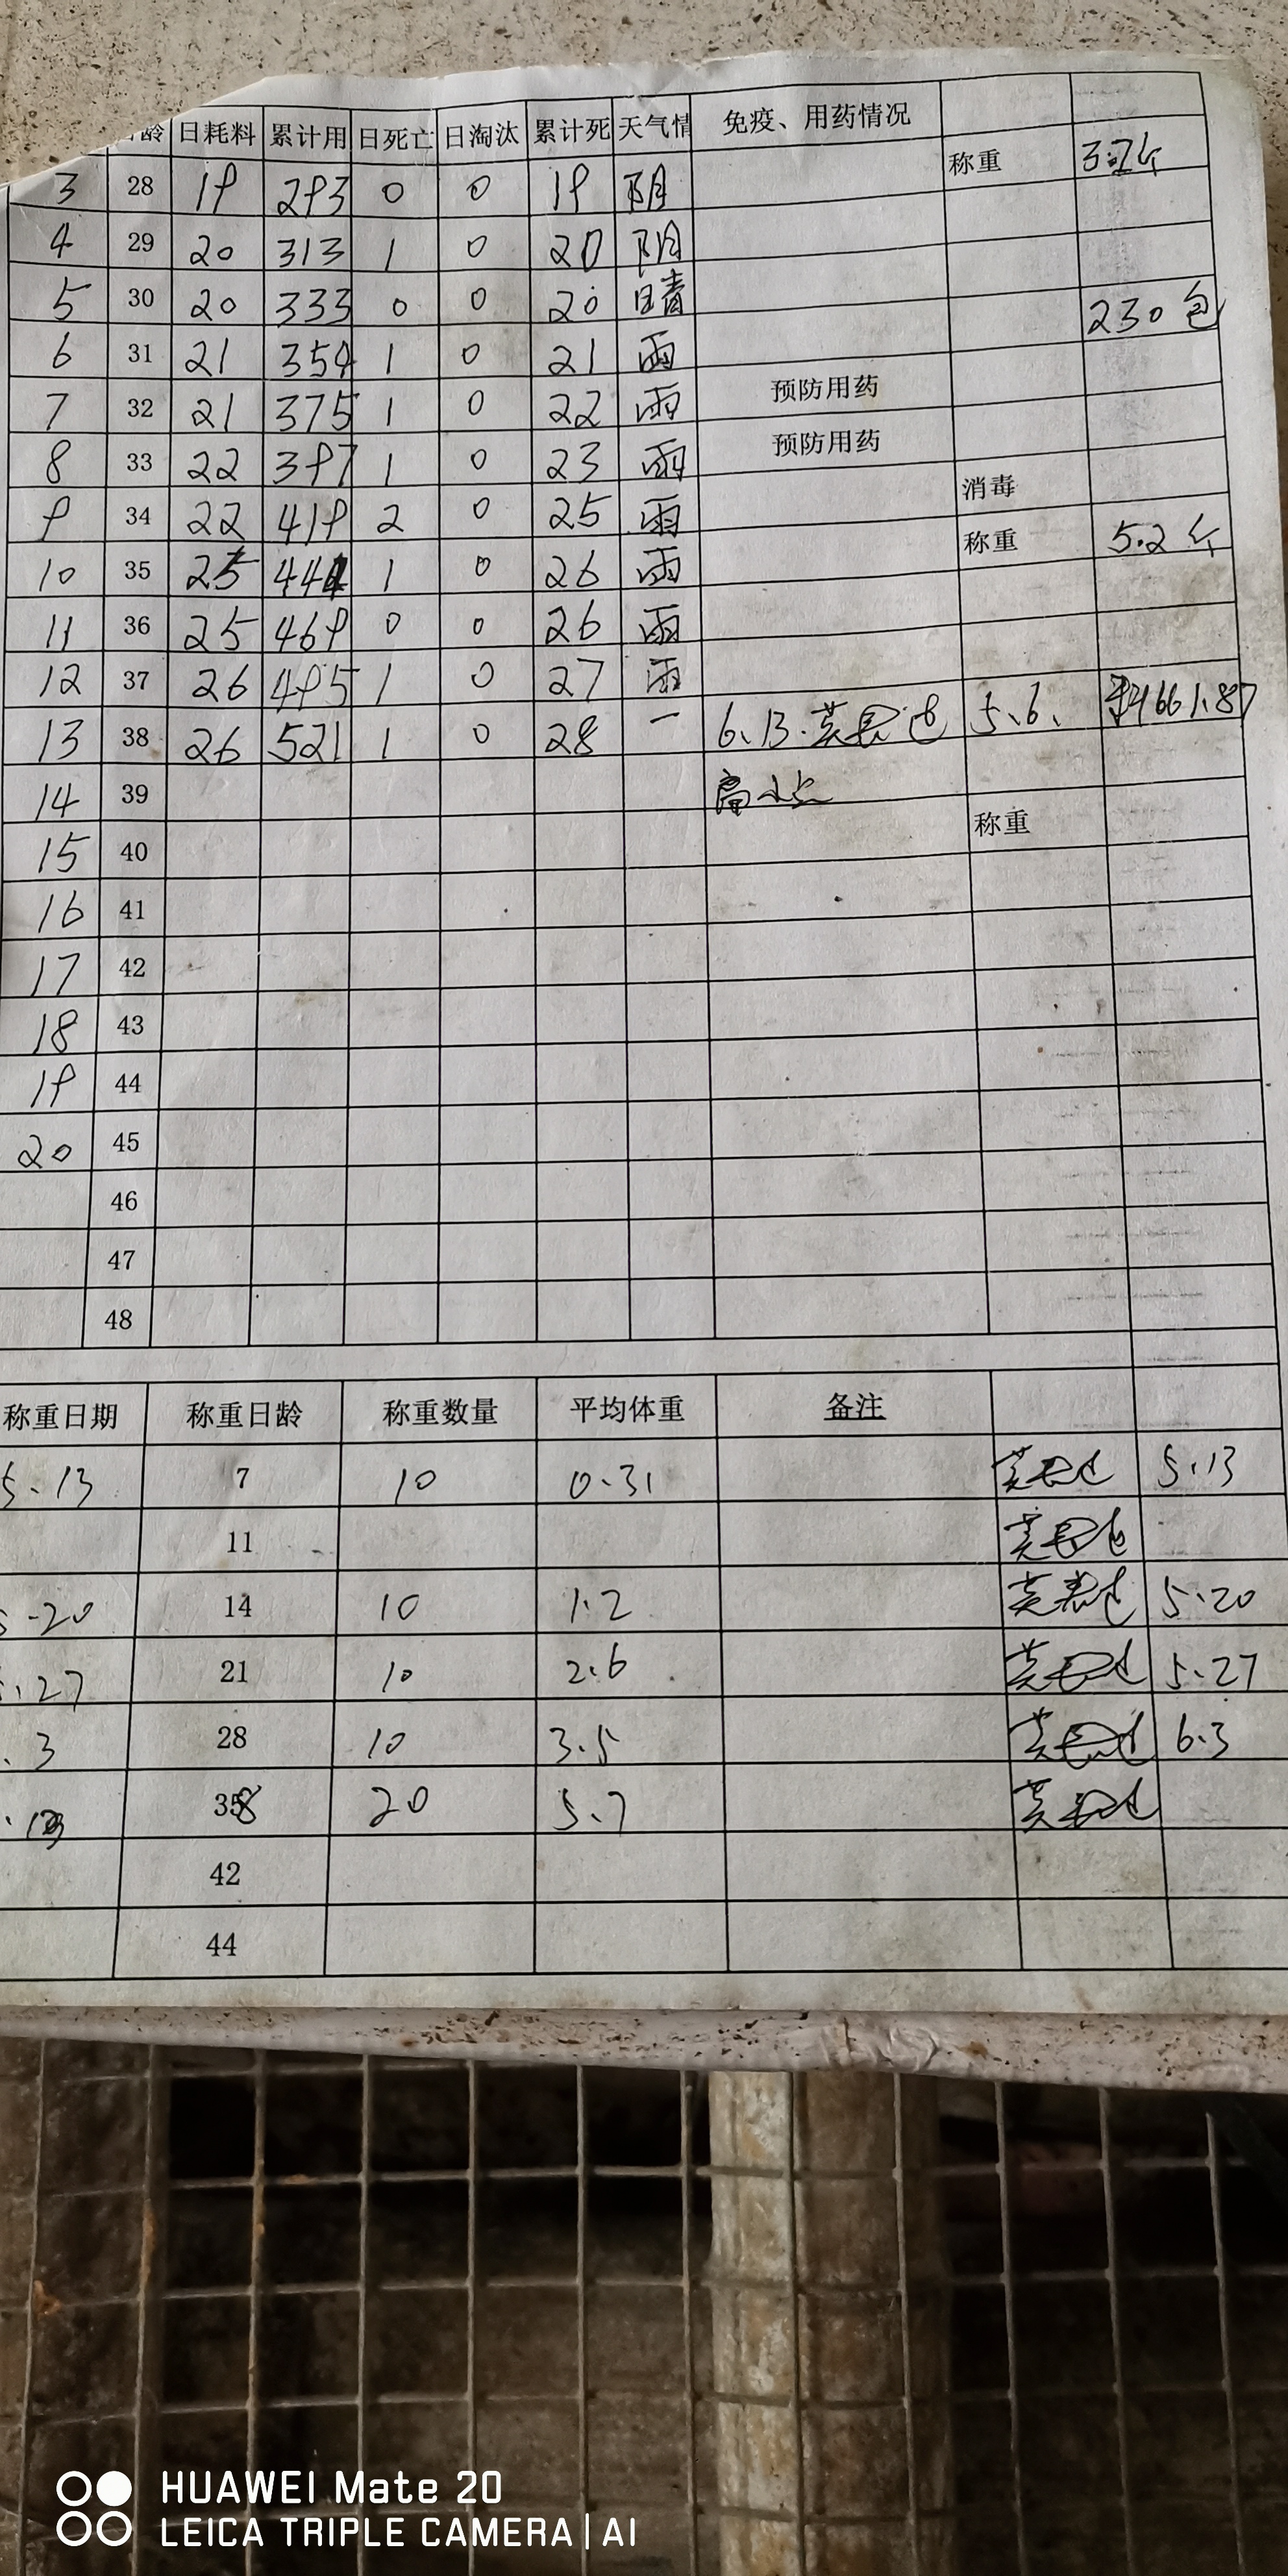 龄 日耗料 累计用 日死亡 日淘汰 累计死 天气情 免疫、用药情况
3 28 19 293 0 0 19 阴 称重 3.2斤
4 29 20 313 1 0 20 阴
5 30 20 333 0 0 20 晴 230包
6 31 21 354 1 0 21 雨
7 32 21 375 1 0 22 雨 预防用药
8 33 22 397 1 0 23 雨 预防用药
9 34 22 419 2 0 25 雨 消毒
10 35 25 444 1 0 26 雨 称重 5.2斤
11 36 25 469 0 0 26 雨
12 37 26 495 1 0 27 雨
13 38 26 521 1 0 28 一 6.13. 5.6.
14 39
15 40 称重
16 41
17 42
18 43
19 44
20 45
46
47
48
称重日期 称重日龄 称重数量 平均体重 备注
5.13 7 10 0.31 5.13
11
5.20 14 10 1.2 5.20
.27 21 10 2.6 5.27
.3 28 10 3.5 6.3
38 20 5.7
42
44
HUAWEI Mate 20
LEICA TRIPLE CAMERA | AI